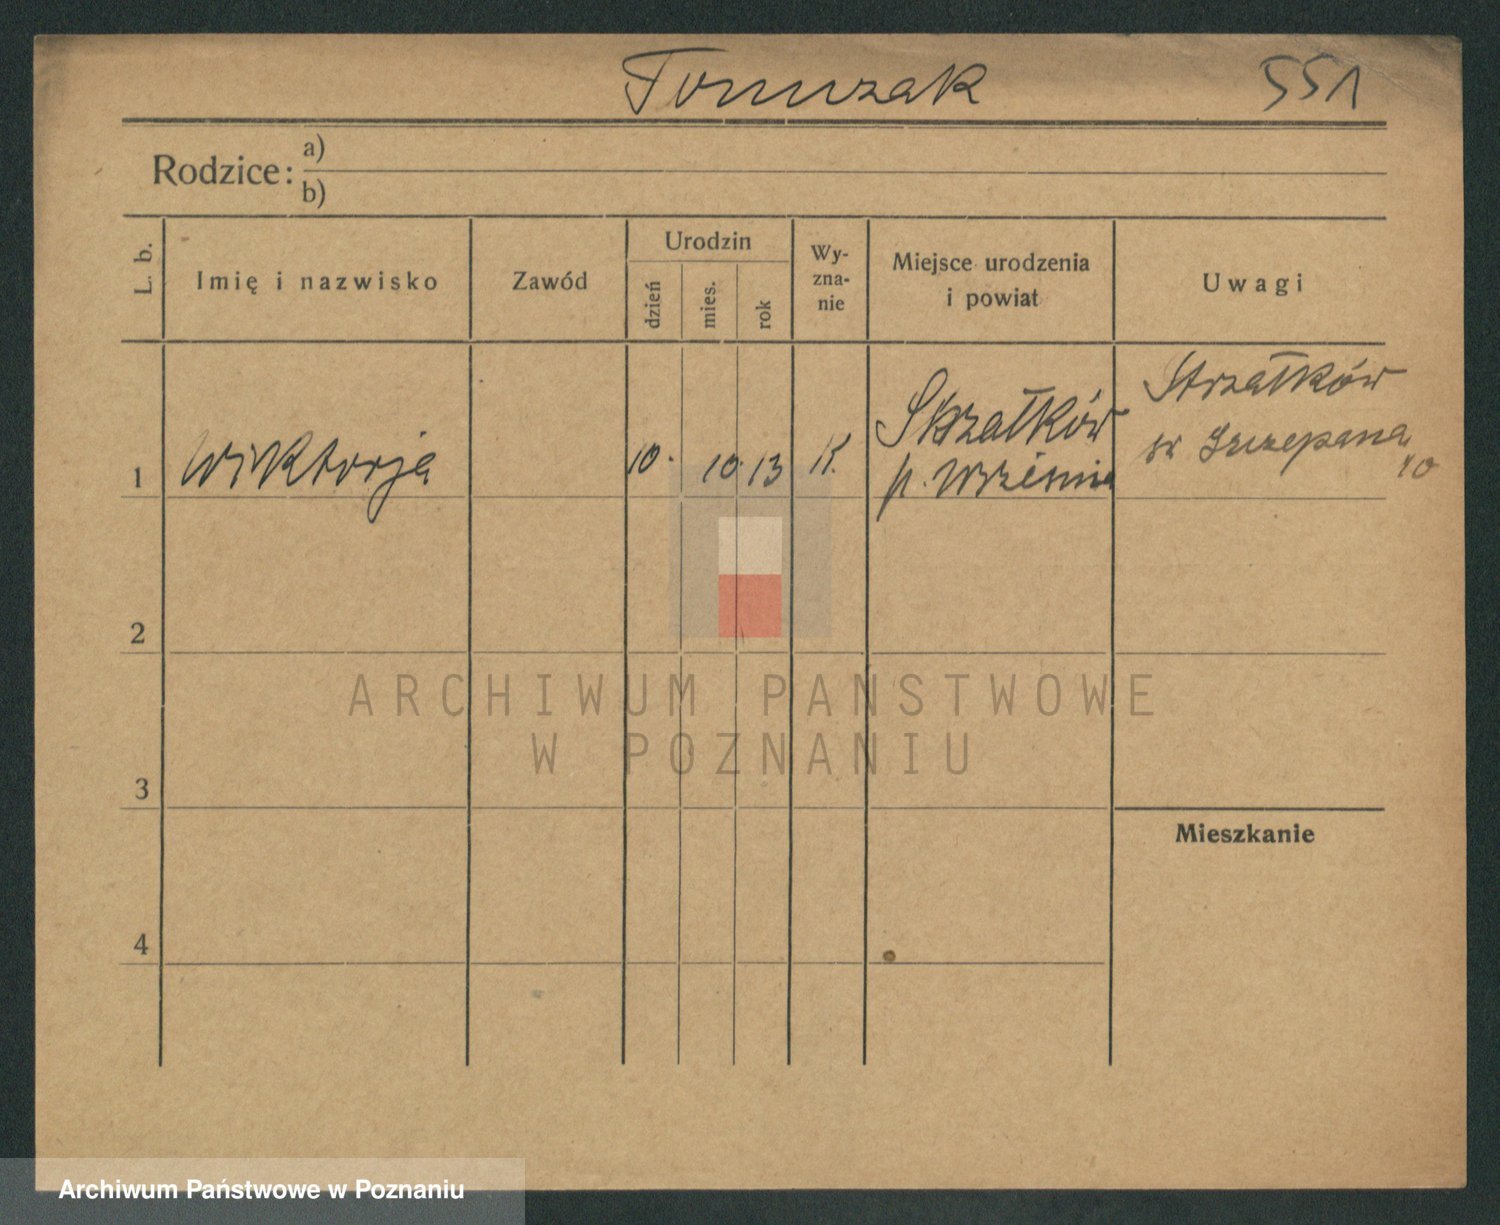 Tomczak 551
Rodzice: a)
b)
L. b.
Imię i nazwisko
Zawód
Urodzin
dzień
mies.
rok
Wy-
zna-
nie
Miejsce urodzenia
i powiat
Uwagi
1 Wiktorja 10. 10. 13 K.
Strzałków
p. Września
Strzałków
św Szczepana
10
2
3
4
Mieszkanie
ARCHIWUM PAŃSTWOWE
W POZNANIU
Archiwum Państwowe w Poznaniu